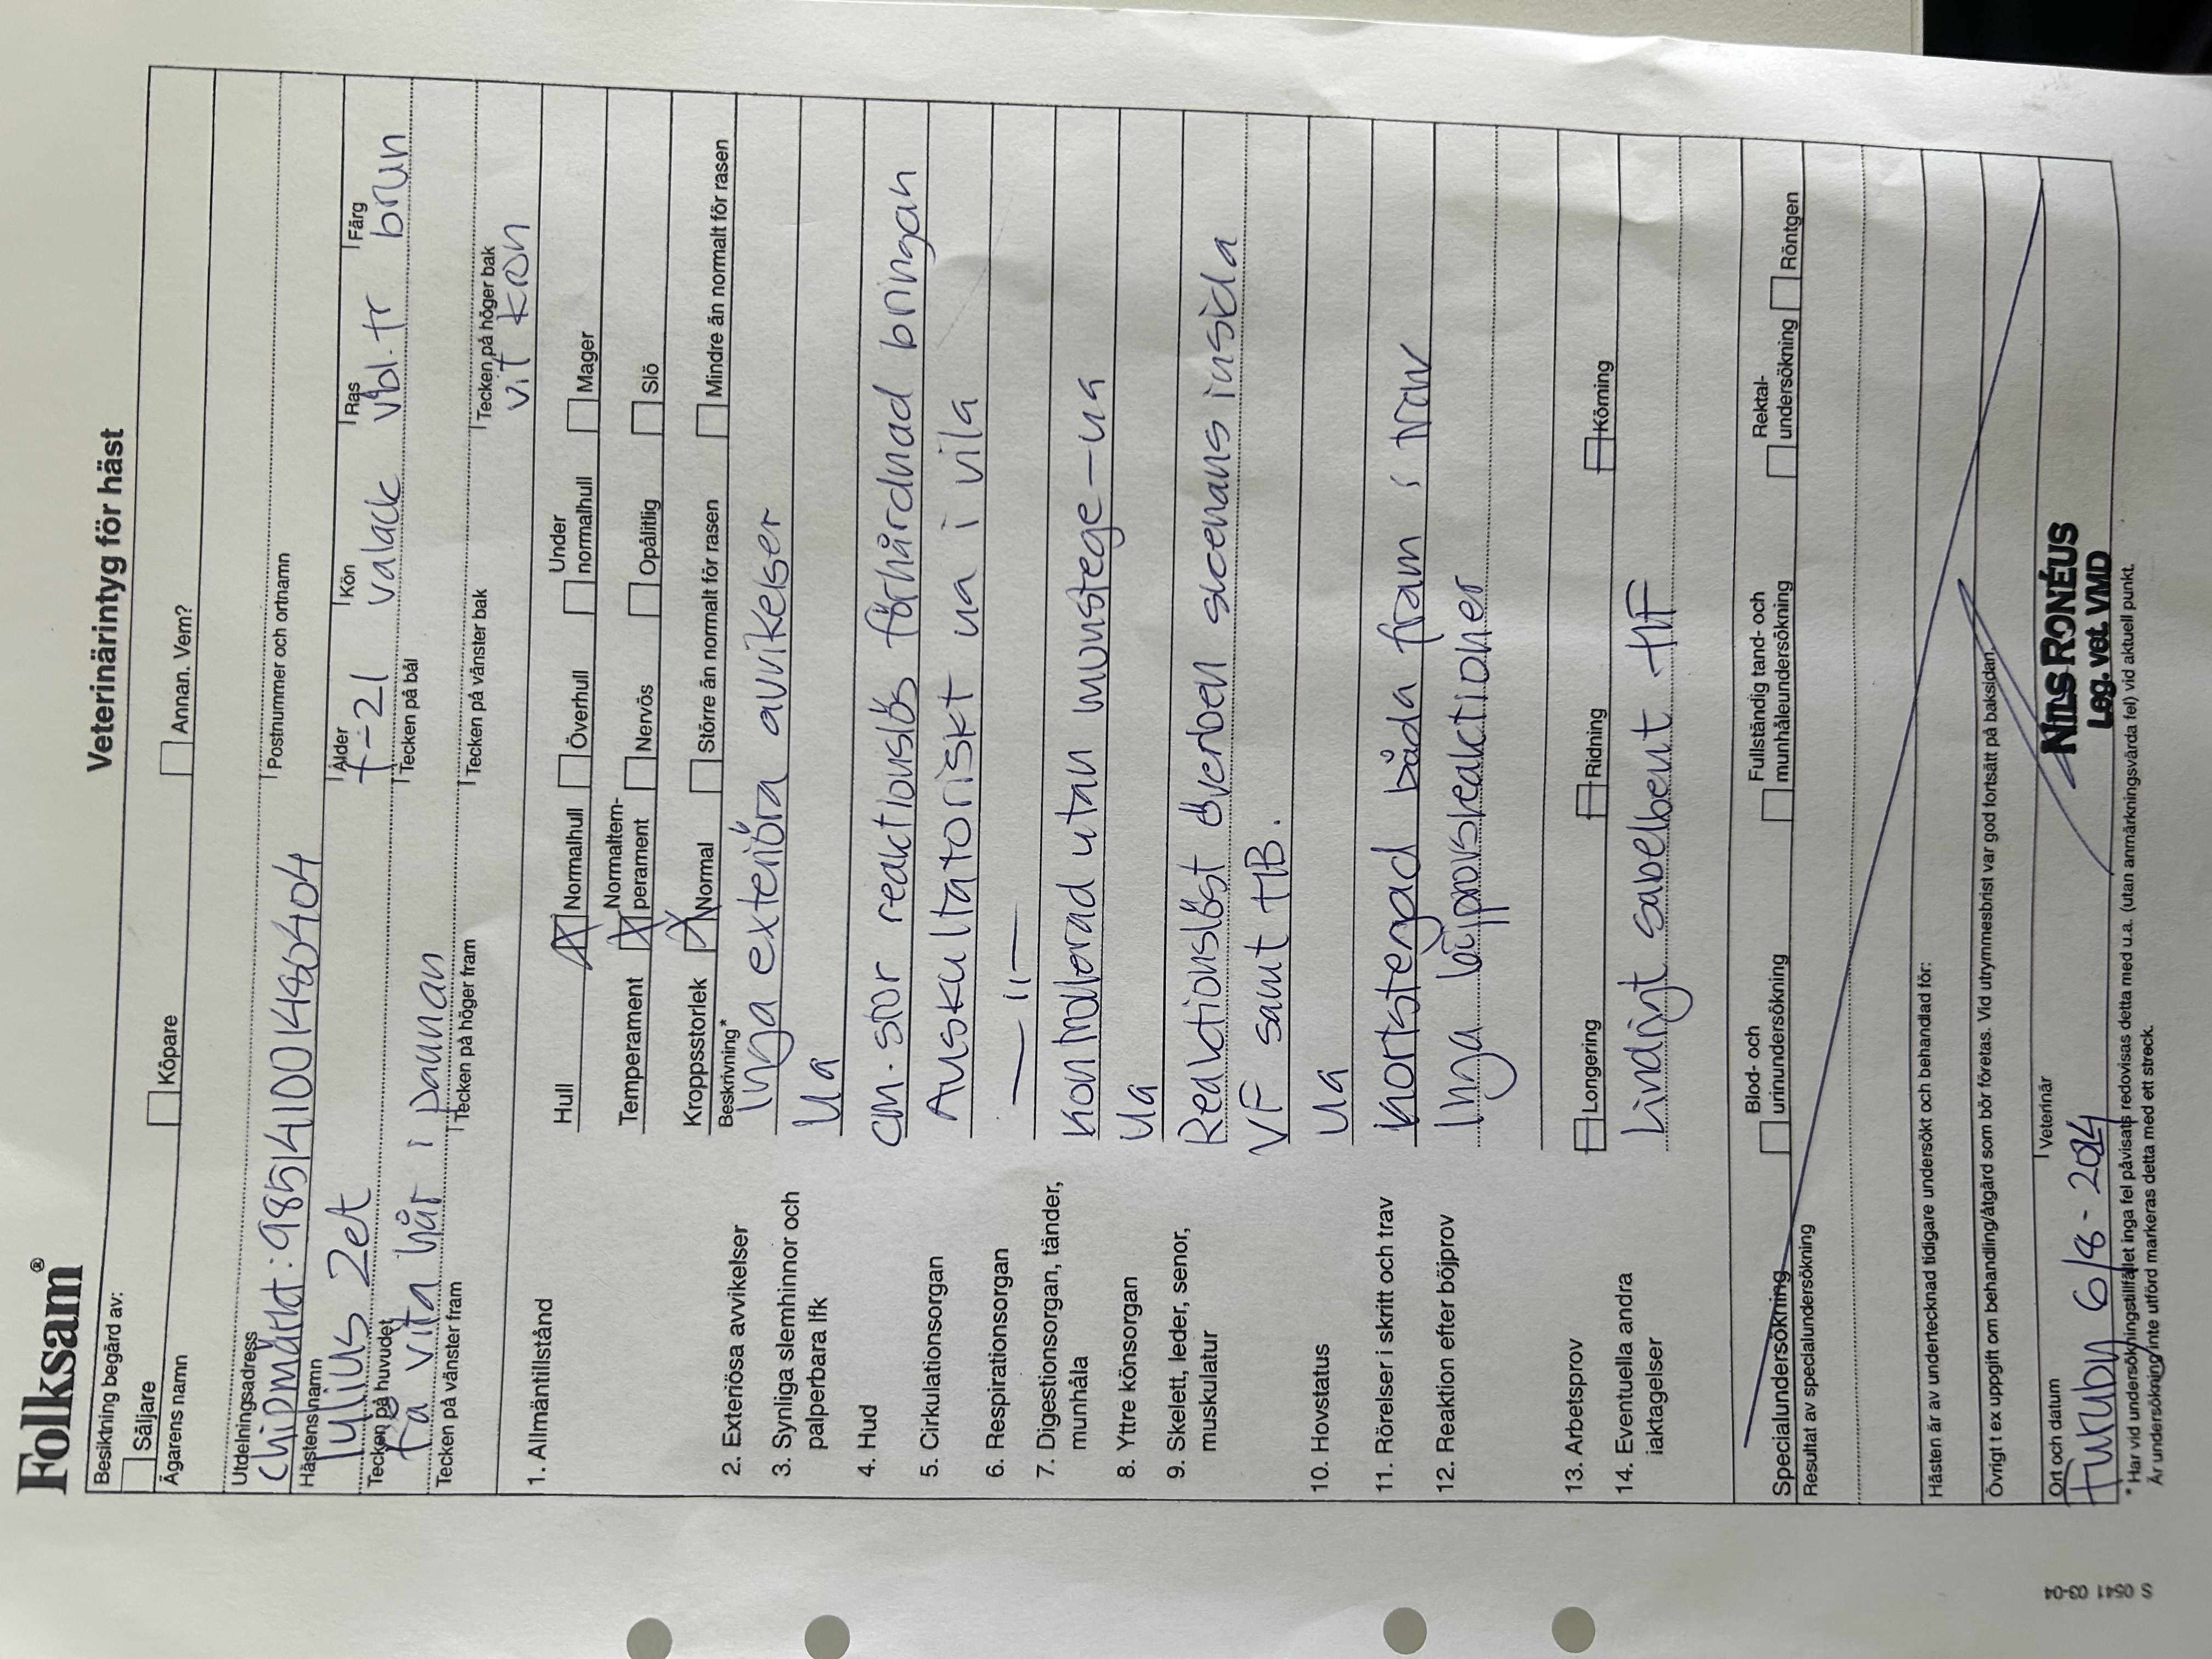 Folksam®
Veterinärintyg för häst
Besiktning begärd av:
Säljare Köpare Annan. Vem?
Ägarens namn
Utdelningsadress Postnummer och ortnamn
Chipmärkt: 985141001480404
Hästens namn Ålder Kön Ras Färg
Julius Zet f-21 valack vbl.tr brun
Tecken på huvudet Tecken på bål
få vita hår i pannan
Tecken på vänster fram Tecken på höger fram Tecken på vänster bak Tecken på höger bak
vit kron
1. Allmäntillstånd Hull Normalhull Överhull Under normalhull Mager
Temperament Normaltem-perament Nervös Opålitlig Slö
Kroppsstorlek Normal Större än normalt för rasen Mindre än normalt för rasen
Beskrivning*
2. Exteriösa avvikelser Inga exteriöra avvikelser
3. Synliga slemhinnor och Ua
palperbara lfk
4. Hud cm-stor reaktionslös förhårdnad bringan
5. Cirkulationsorgan Auskultatoriskt ua i vila
6. Respirationsorgan — 11 —
7. Digestionsorgan, tänder, Kontrollerad utan munstege - ua
munhåla
8. Yttre könsorgan Ua
9. Skelett, leder, senor, Reaktionslöst överben skenans insida
muskulatur VF samt HB.
10. Hovstatus Ua
11. Rörelser i skritt och trav Kortstegad båda fram i trav
12. Reaktion efter böjprov Inga böjprovsreaktioner
13. Arbetsprov Longering Ridning Körning
14. Eventuella andra Lindrigt sabelbent HF
iakttagelser
Specialundersökning Blod- och urinundersökning Fullständig tand- och munhåleundersökning Rektal-undersökning Röntgen
Resultat av specialundersökning
Hästen är av undertecknad tidigare undersökt och behandlad för:
Övrigt t ex uppgift om behandling/åtgärd som bör företas. Vid utrymmesbrist var god fortsätt på baksidan.
Ort och datum Veterinär
Furuby 6/8 - 2024 NILS RONÉUS
Leg. vet. VMD
* Har vid undersökningstillfället inga fel påvisats redovisas detta med u.a. (utan anmärkningsvärda fel) vid aktuell punkt.
Är undersökning inte utförd markeras detta med ett streck.
S 0541 03-04